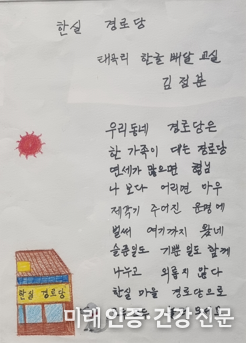 한실 경로당
태육리 한글 배달 교실
김점분
우리동네 경로당은
한 가족이 대는 경로당
연세가 많으면 형님
나 보다 어리면 아우
제각기 주어진 운명에
벌써 여기까지 왔네
슬픈일도 기쁜일도 함께
나누고 외롭지 않다
한실 마을 경로당으로
한실 경로당
미래 인증·건강 신문